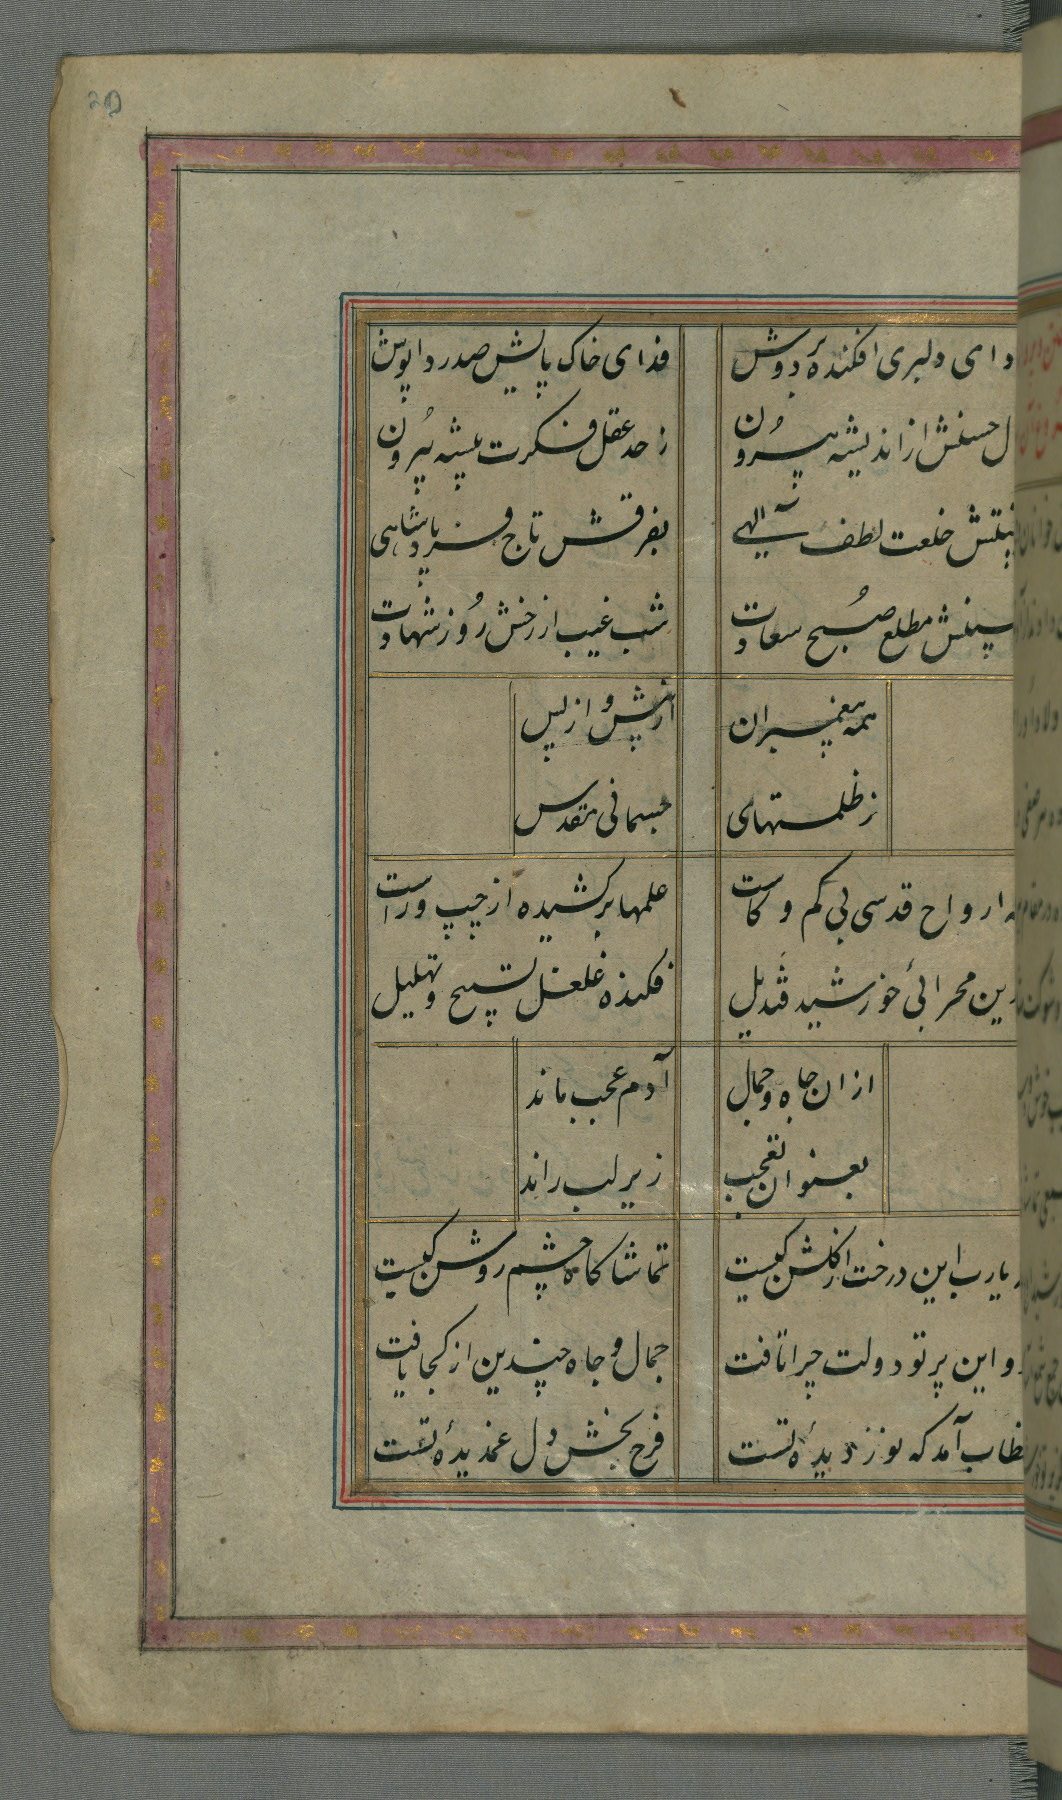 دای دلبری افکنده بر دوش فدای خاک پایش صد ردا پوش
حسنش از اندیشه بیرون ز حد عقل فکرت پیشه بیرون
خلعت لطف آلهی بفرقش تاج فر پادشاهی
مطلع صبح سعادت شب غیب از رخش روز شهادت
همه پیغمبران از پیش و از پس
ز ظلمتهای جسمانی مقدس
ارواح قدسی بی کم و کاست علمها برکشیده از چپ و راست
محرابی خورشید قندیل فکنده غلغل تسبیح و تهلیل
از ان جاه و جمال آدم عجب ماند
بعنوان تعجب زیر لب راند
یارب این درخت از گلشن کیست تماشاگاه چشم روشن کیست
و این پرتو دولت چرا تافت جمال و جاه چندین از کجا یافت
خطاب آمد که نور ز دیدهٔ تست فرح بخش دل غمدیدهٔ تست